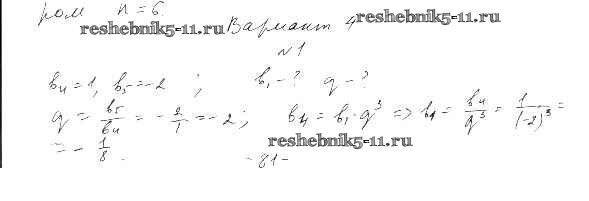 ром n = 6
reshebnik5-11.ru Вариант 4 reshebnik5-11.ru
№1
b₄ = 1, b₅ = -2 ; b₁ - ? q - ?
q = b₅/b₄ = -2/1 = -2; b₄ = b₁·q³ => b₁ = b₄/q³ = 1/(-2)³ =
= -1/8.
reshebnik5-11.ru
- 81 -